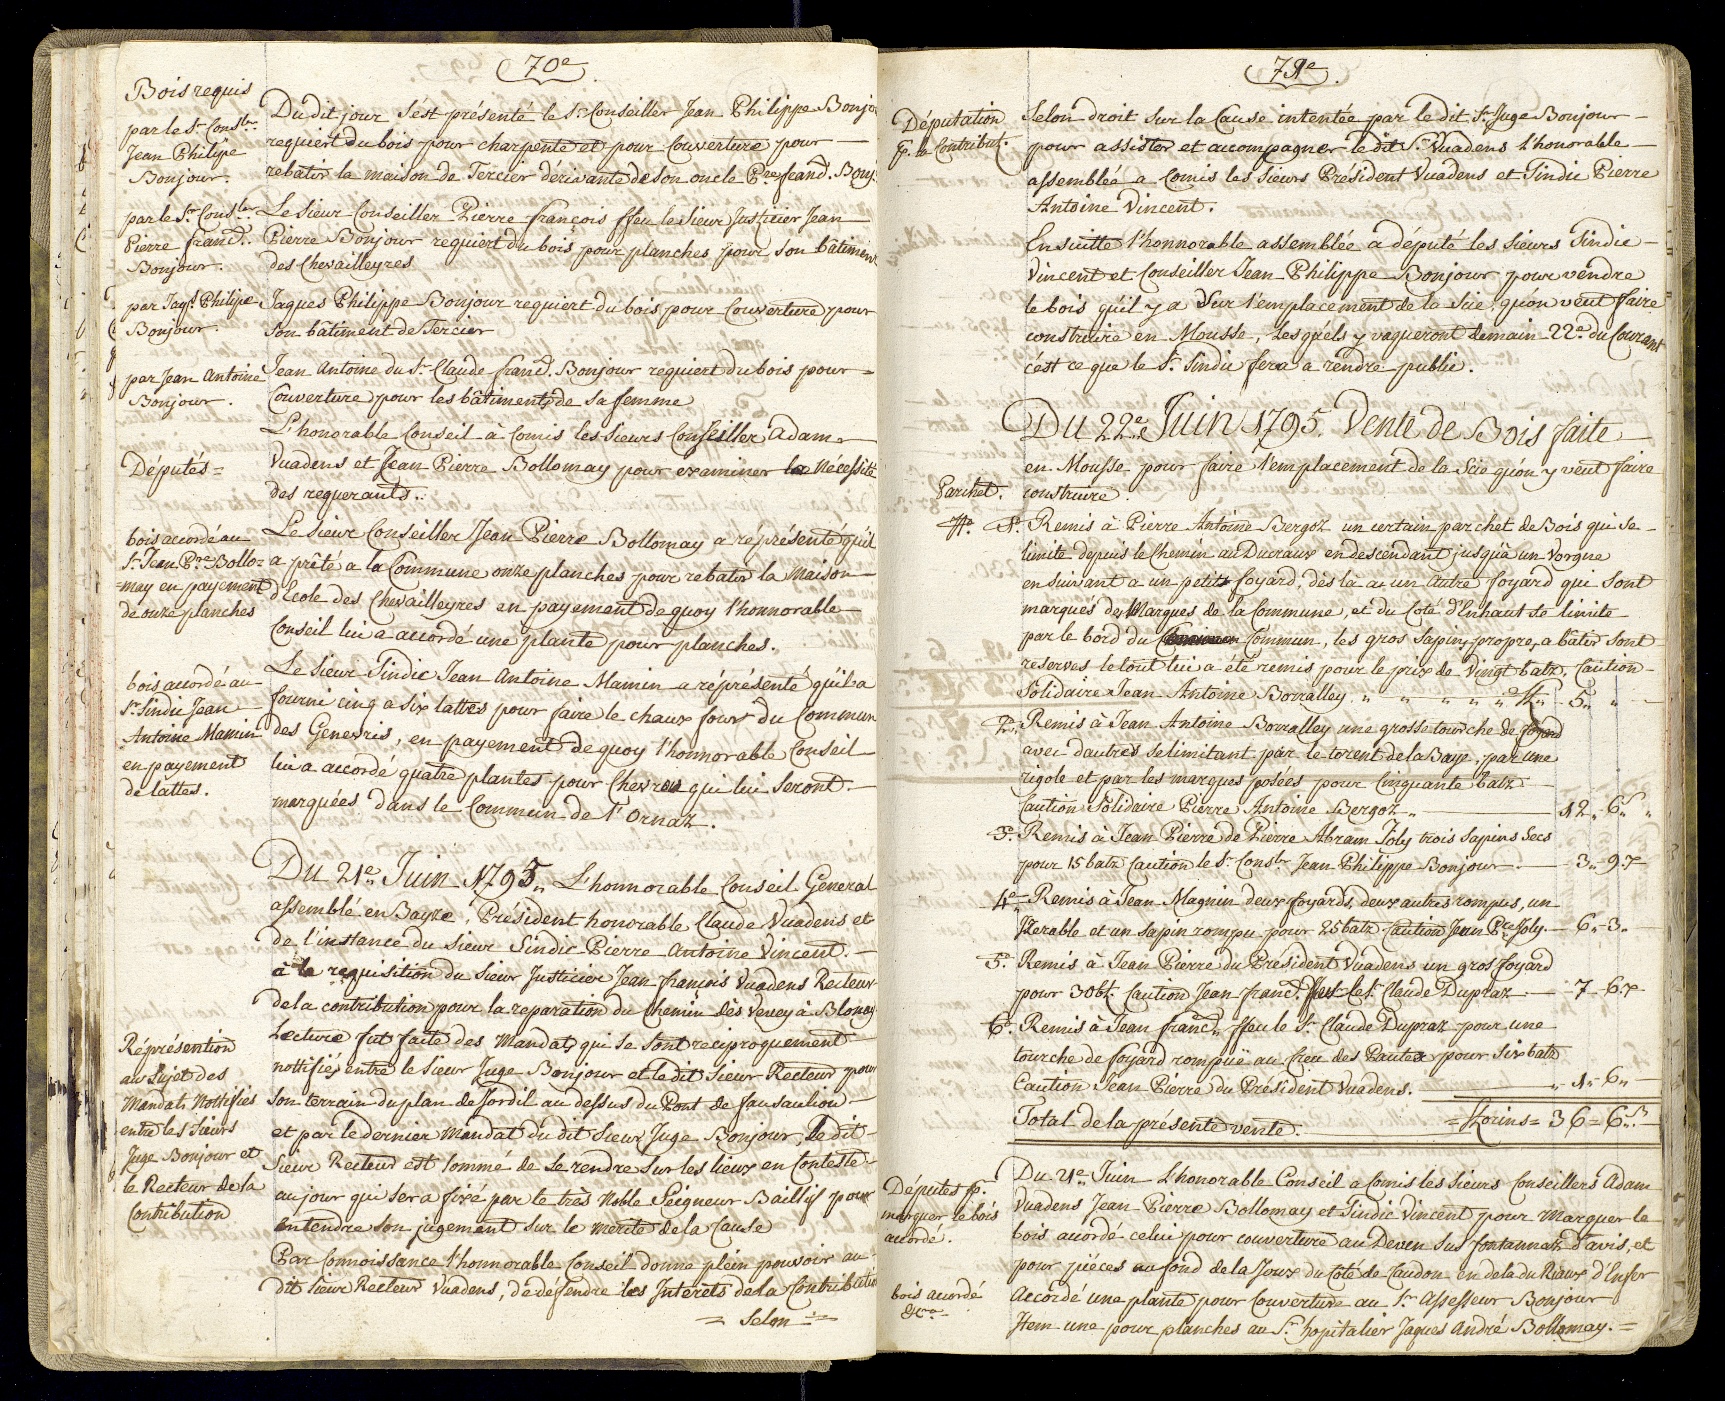 70e
Bois requis
par le Sr. Consler.
Jean Philipe
Bonjour.
Du dit jour s'est présenté le Sr. Conseiller Jean Philippe Bonjo
requiert du bois pour charpente et pour Couverture pour
rebâtir la maison de Tercier dérivante de son oncle Pre. feand. Bonj.
par le Sr. Consler.
Pierre francs.
Bonjour.
Le Sieur Conseiller Pierre françois ffeu le Sieur Justicier Jean
Pierre Bonjour requiert du bois pour planches pour son bâtiment
des Chevailleyres
par Jaqs. Philipe
Bonjour.
Jaques Philippe Bonjour requiert du bois pour Couverture pour
son bâtiment de Tercier
par Jean Antoine
Bonjour.
Jean Antoine du Sr. Claude francs. Bonjour requiert du bois pour =
Couverture pour les bâtiments de sa femme
Députés =
L'honorable Conseil à Comis les Sieurs Conseiller Adam
Vuadens et Jean Pierre Bollomay pour examiner la Nécessité
des requerants..
bois accordé au
Sr. Jean Pre. Bollo=
=may en payement
de onze planches
Le Sieur Conseiller Jean Pierre Bollomay a réprésenté qu'il
a prêté a la Commune onze planches pour rebatir la Maison
d'Ecole des Chevailleyres en payement de quoy l'honnorable
Conseil lui a accordé une plante pour planches.
bois accordé au
Sr. Sindic Jean
Antoine Mamin
en payement
de lattes.
Le Sieur Sindic Jean Antoine Mamin a réprésenté qu'il a
fourni cinq a Six lattes pour faire le chaux four du Commun
des Genevris, en payement de quoy l'honnorable Conseil
lui a accordé quatre plantes pour Chevron qui lui Seront
marquées dans le Commun de l'Ornaz.
Du 21e. Juin 1795. L'honnorable Conseil General
assemblé en Bayse, Président honorable Claude Vuadens et
de l'instance du Sieur Sindic Pierre Antoine Vincent.
à la requisition du Sieur Justicier Jean françois Vuadens Recteur
de la contribution pour la reparation du Chemin dès Vevey à Blonay
Réprésention
au Sujet des
Mandats Nottifiés
entre les Sieurs
Juge Bonjour et
le Recteur de la
Contribution
Lecture fut faite des Mandats qui se sont reciproquement
nottifiés entre le Sieur Juge Bonjour et le dit Sieur Recteur pour
son terrain du plan de Jordil au dessus du Pont de fausaulion
et par le dernier Mandat du dit Sieur Juge Bonjour, le dit
Sieur Recteur est sommé de se rendre sur les lieux en Conteste
au jour qui sera fixé par le très Noble Seigneur Baillif pour
entendre son jugement sur le merite de la Cause
Par Connoissance l'honnorable Conseil donne plein pouvoir au
dit Sieur Recteur Vuadens, de défendre les Interets de la Contribution
= Selon =
71e
Députation
pr. la Contribut.
Selon droit sur la Cause intentée par le dit Sr. Juge Bonjour
pour assister et accompagner le dit Sr. Vuadens l'honorable
assemblée a Comis les Sieurs President Vuadens et Sindic Pierre
Antoine Vincent.
En suitte l'honnorable assemblée a député les Sieurs Sindic
Vincent et Conseiller Jean Philippe Bonjour pour vendre
le bois qu'il y a sur l'emplacement de la Scie qu'on veut faire
construire en Mousse, Lesquels y vaqueront demain 22e. du Courant
c'est ce que le Sr. Sindic fera a rendre public.
Du 22e. Juin 1795. Vente de Bois faite
en Mousse pour faire l'emplacement de la Scie qu'on y veut faire
construire.
Parchet.
No. 1e. Remis à Pierre Antoine Bergoz un certain parchet de Bois qui se
limite depuis le Chemin au Ducraux en descendant jusqu'a un Vorgne
en suivant a un petit foyard, dès là a un autre foyard qui sont
marqués des Marques de la Commune, et du Coté d'Enhaut se limite
par le bord du Commun, les gros sapins propre, a bâtir sont
reservés le tout lui a été remis pour le prix de Vingt batz. Caution
Solidaire Jean Antoine Borralley. " " " " " fl. " 5 " "
2e. Remis à Jean Antoine Borralley une grosse tourche de foyard
avec d'autres se limitant par le torent de la Baye, par une
rigole et par les marques posées pour Cinquante batz
Caution Solidaire Pierre Antoine Bergoz " 12 " 6 "
3e. Remis à Jean Pierre de Pierre Abram Joly trois Sapins Secs
pour 15 batz Caution le Sr. Consler. Jean Philippe Bonjour 3 " 9 "
4e. Remis à Jean Magnin deux foyards, deux autres rompus, un
Iserable et un sapin rompu pour 25 batz Caution Jean Pre. Joly. 6 " 3 "
5e. Remis à Jean Pierre du Président Vuadens un gros foyard
pour 30 bt. Caution Jean francs. ffeu le Sr. Claude Dupraz 7 " 6 "
6e. Remis à Jean francs. ffeu le Sr. Claude Dupraz pour une
tourche de foyard rompuë au Creu des Pautex pour Six batz
Caution Jean Pierre du Président Vuadens. " 1 " 6 "
Total de la présente vente. = florins = 36 = 6 s.
Députés pr.
marquer le bois
accordé.
Du 21e. Juin L'honorable Conseil a Comis les Sieurs Conseillers Adam
Vuadens Jean Pierre Bollomay et Sindic Vincent pour Marquer le
bois accordé celui pour couverture au Deven sus fontannaz d'avis, et
pour pièces au fond de la Joux du Coté de Caudon en dela du Riaux d'Enfer
bois accordé
&ca.
Accordé une plante pour Couverture au Sr. Assesseur Bonjour
Item une pour planches au Sr. hopitalier Jaques André Bollomay. =